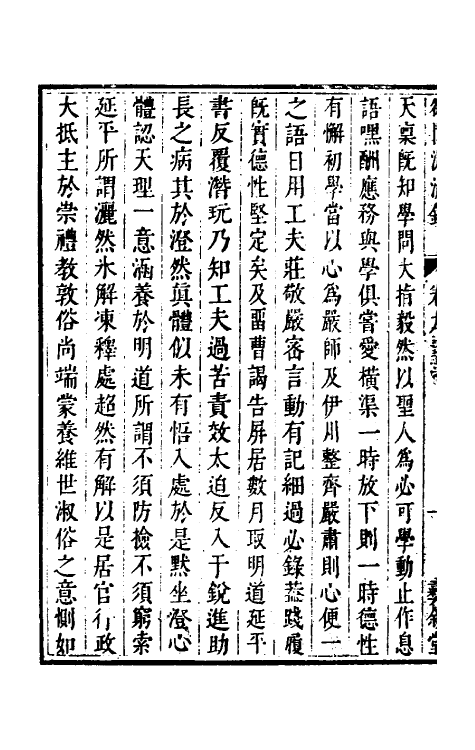 天稟旣知學問大指毅然以聖人爲必可學動止作息
語嘿酬應務與學俱嘗愛橫渠一時放下則一時德性
有懈初學當以心爲嚴師及伊川整齊嚴肅則心便一
之語日用工夫莊敬嚴密言動有記細過必錄葢踐履
旣實德性堅定矣及畱曹謁告屛居數月取明道延平
書反覆潛玩乃知工夫過苦責效太迫反入于銳進助
長之病其於澄然眞體似未有悟入處於是默坐澄心
體認天理一意涵養於明道所謂不須防檢不須窮索
延平所謂灑然氷解凍釋處超然有解以是居官行政
大抵主於崇禮教敦俗尚端蒙養維世淑俗之意惻如